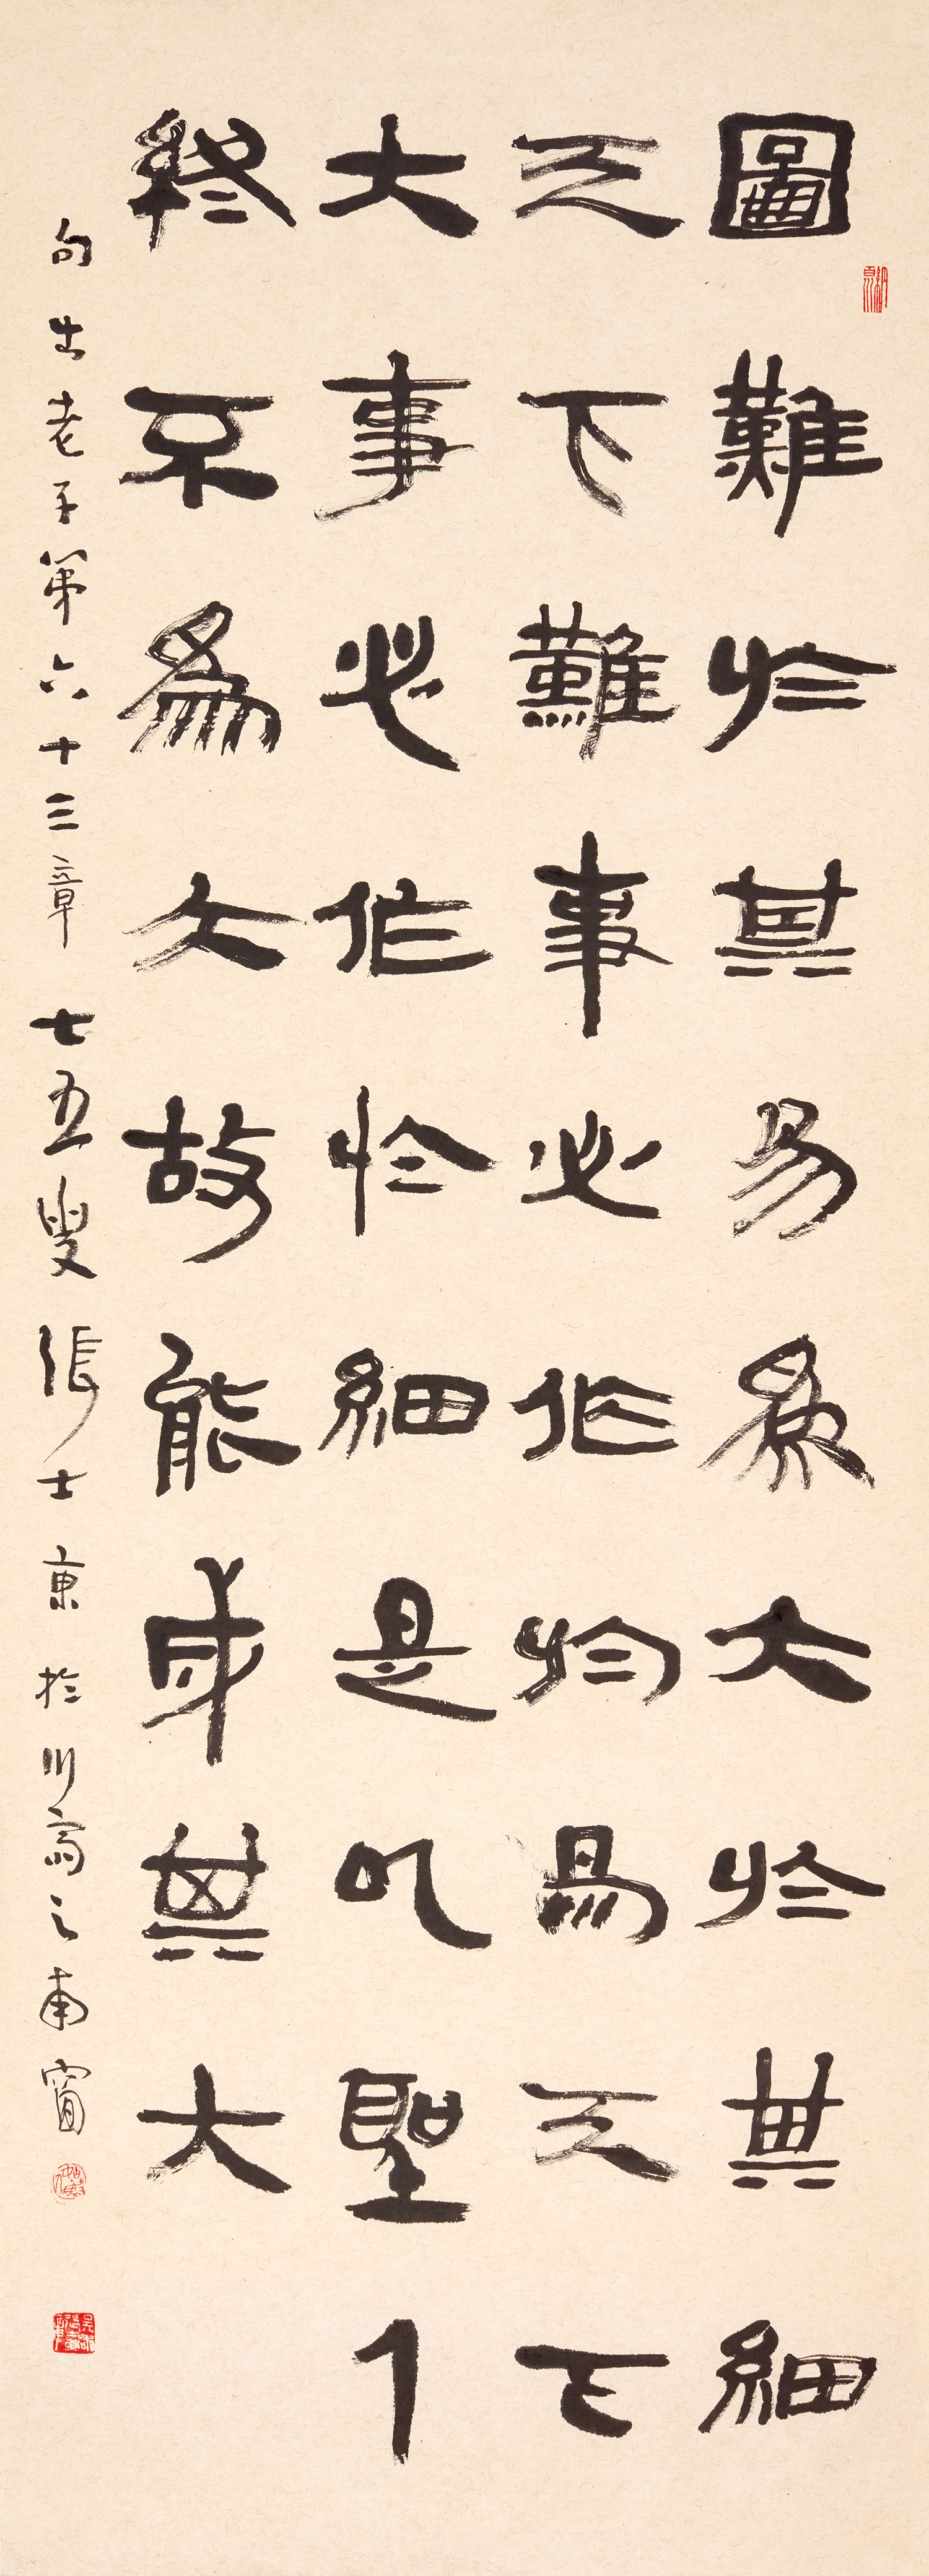 圖難於其易為大於其細
天下難事必作於易天下
大事必作於細是以聖人
終不為大故能成其大
句出老子第六十三章 七五叟張士東於川寓之南窗